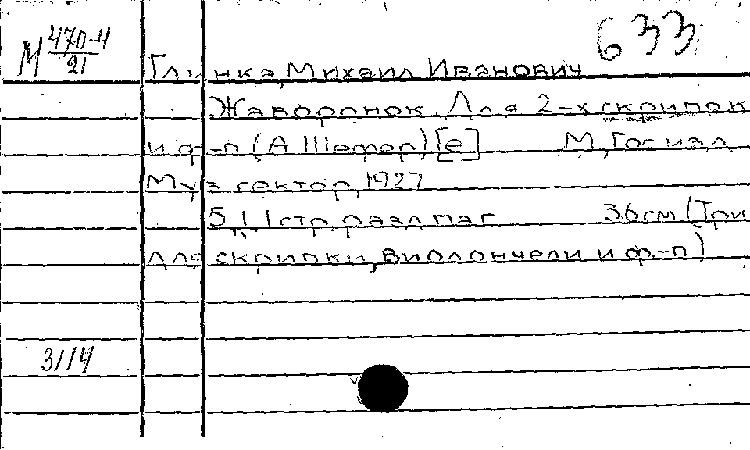 633
М 470-4/21
Глинка, Михаил Иванович
Жаворонок. Для 2-х скрипок
и ф-п (А Шефер) [е] М, Гос изд
Муз сектор, 1927
5, 1, 1 стр. разд паг 36 см (Три
для скрипки, виолончели и ф-п)
3114